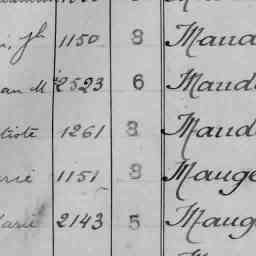 1150 8 Maud
an M 2523 6 Maud
tiste 1261 8 Maud
rie 1151 8 Mauge
arie 2143 5 Maug